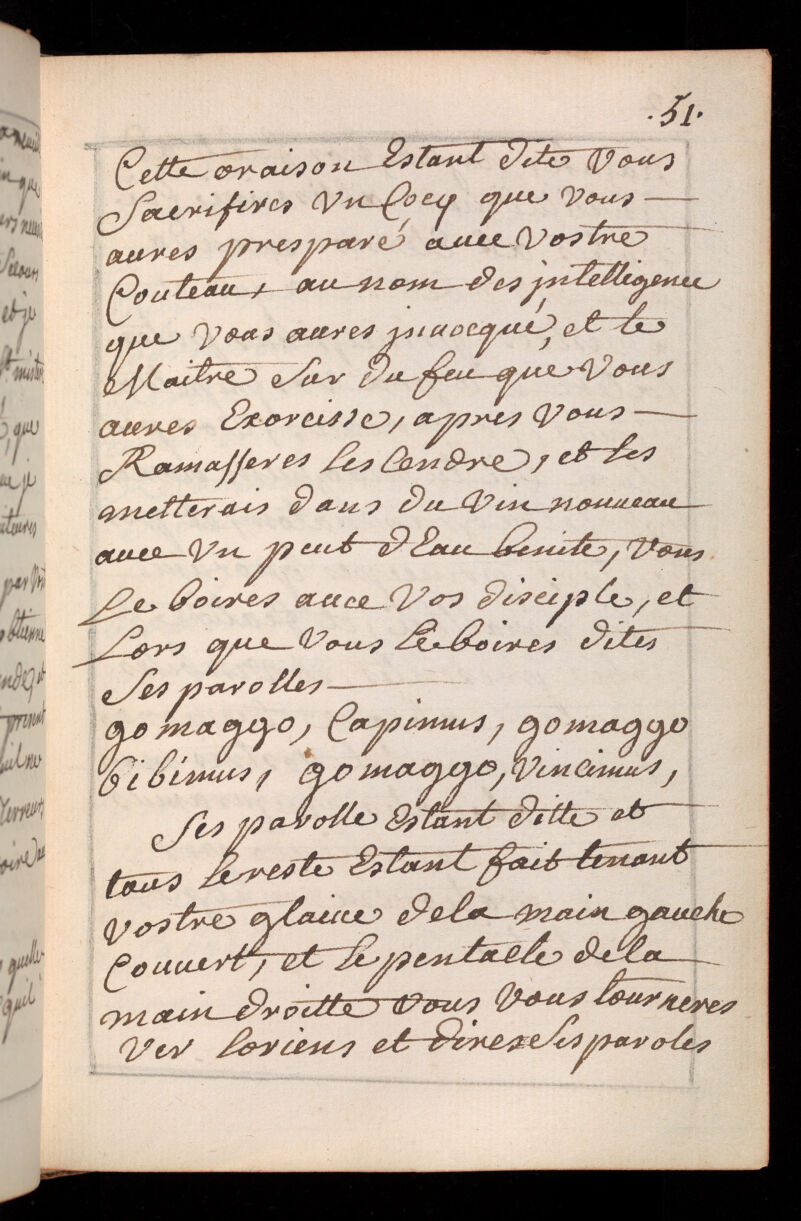 .51.
Cette oraison Estant dite vous
Sacrifires vn Cocq que vous
aures presparé auec vostre
Couteau, au nom des jntelligence
que vous aures jnuocqué, et le
Maitre sur du feu que vous
aures Exorcisse, apres vous
Ramasseres les Cendre, et les
metterais dans du vin nouueau
auec vn peut dEau benite, vous
Le boires auec vos disciple, et
Lors que vous Le boires dites
Ses parolles
gomaggo, Capimus, gomaggo
bibimus, gomaggo, vincimus,
Ses parolle Estant ditte et
tous Le reste Estant fait tenant
vostre glaiue dela main gauche
Couuert, et Le pentacle dela
main droitte vous vous tourneres
ver loriens et dires Ses paroles